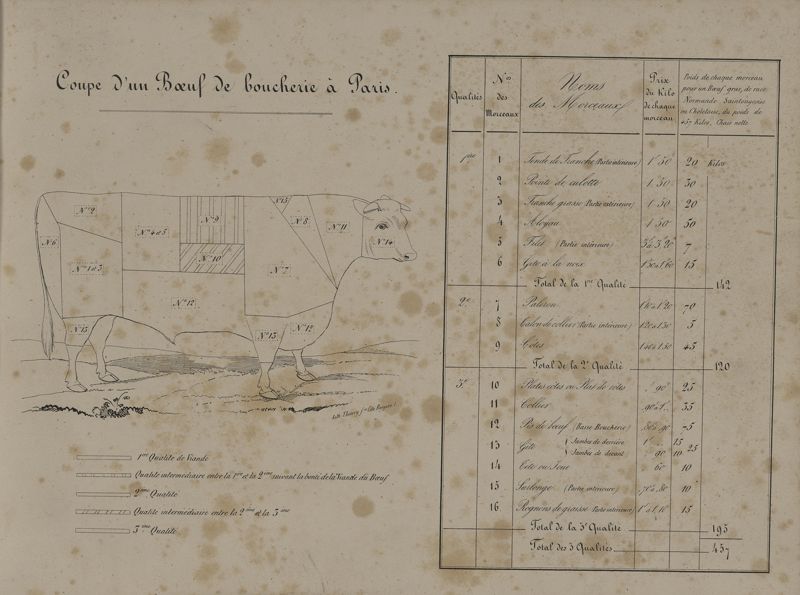 Coupe d'un Bœuf de boucherie à Paris.
N° 2
N° 6
N° 4 et 5
N° 9
N° 15
N° 8
N° 11
N° 14
N° 10
N° 1 et 3
N° 7
N° 12
N° 13
N° 13
N° 12
Lith. Thierry
1ère Qualité de Viande
Qualité intermédiaire entre la 1ère et la 2ème suivant la bonté de la Viande du Bœuf
2ème Qualité
Qualité intermédiaire entre la 2ème et la 3ème
3ème Qualité
Qualités
Nos des Morceaux
Noms des Morceaux
Prix du Kilo de chaque morceau
Poids de chaque morceau pour un Bœuf gras, de race Normande Saintongeoise ou Choletaise, du poids de 457 Kilos, Chair nette
1ère 1 Tende de Tranche (Partie intérieure) 1f 50c 20 Kilos
2 Pointe de culotte 1.50 30
3 Tranche grasse (Partie intérieure) 1.50 20
4 Aloyau 1.50 50
5 Filet (Partie intérieure) 7
6 Gîte à la noix 1f50 à 1f60 15
Total de la 1re Qualité 142
2e 7 Paleron 1f10 à 1f20 70
8 Talon de collier (Partie intérieure) 1.20 à 1.30 5
9 Côtes 1.40 à 1.50 45
Total de la 2e Qualité 120
3e 10 Plates côtes ou Plat de côtes .90 25
11 Collier .90 à 1. 35
12 Pis de bœuf (Basse Boucherie) .80 à .90 75
13 Gîte { Jambe de derrière 1f 15
{ Jambe de devant .90 10 25
14 Tête ou Joue 60 10
15 Surlonge (Partie intérieure) 70 à .80 10
16 Rognons de graisse (Partie intérieure) 1f à 1.10 15
Total de la 3e Qualité 195
Total des 3 Qualités 457